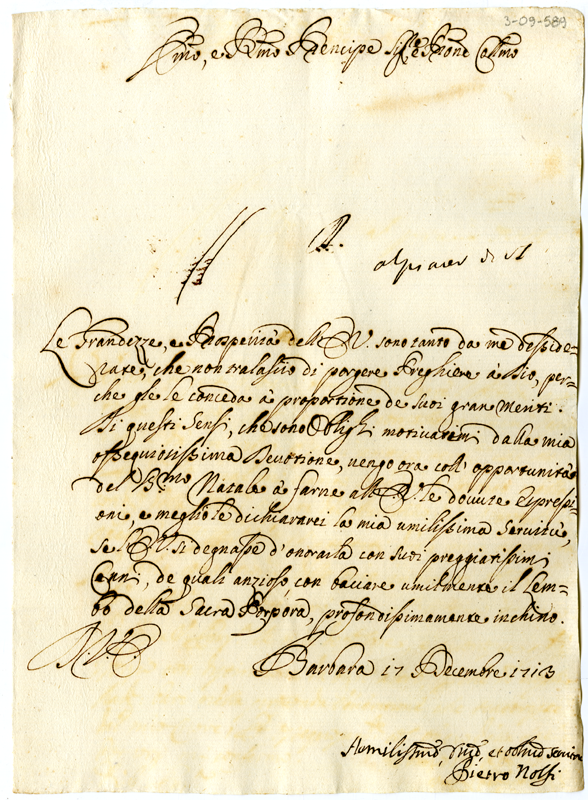 3-09-589
Emo, e Rmo Prencipe Sigre e Prone Colmo
R.
Le Grandezze, e Prosperità dell'E. V. sono tanto da me deside=
rate, che non tralascio di porgere Preghiere à Dio, per=
che gle le conceda à proportione de suoi gran Meriti.
Di questi Sensi, che sono Oblighi motivatimi dalla mia
ossequiosissima Devotione, vengo ora coll'opportunità
del S.mo Natale à farne all'E. V. le dovute Espressi=
oni, e meglio le dichiararei la mia umilissima servitù,
se l'E. V. si degnasse d'onorarla con suoi preggiatissimi
Cenni, de quali anzioso, con baciare umilmente il Lem=
bo della Sacra Porpora, profondissimamente inchino.
D. V. E.
Barbara 17 Decembre 1713
Humilissmo, et
Pietro Nolfi